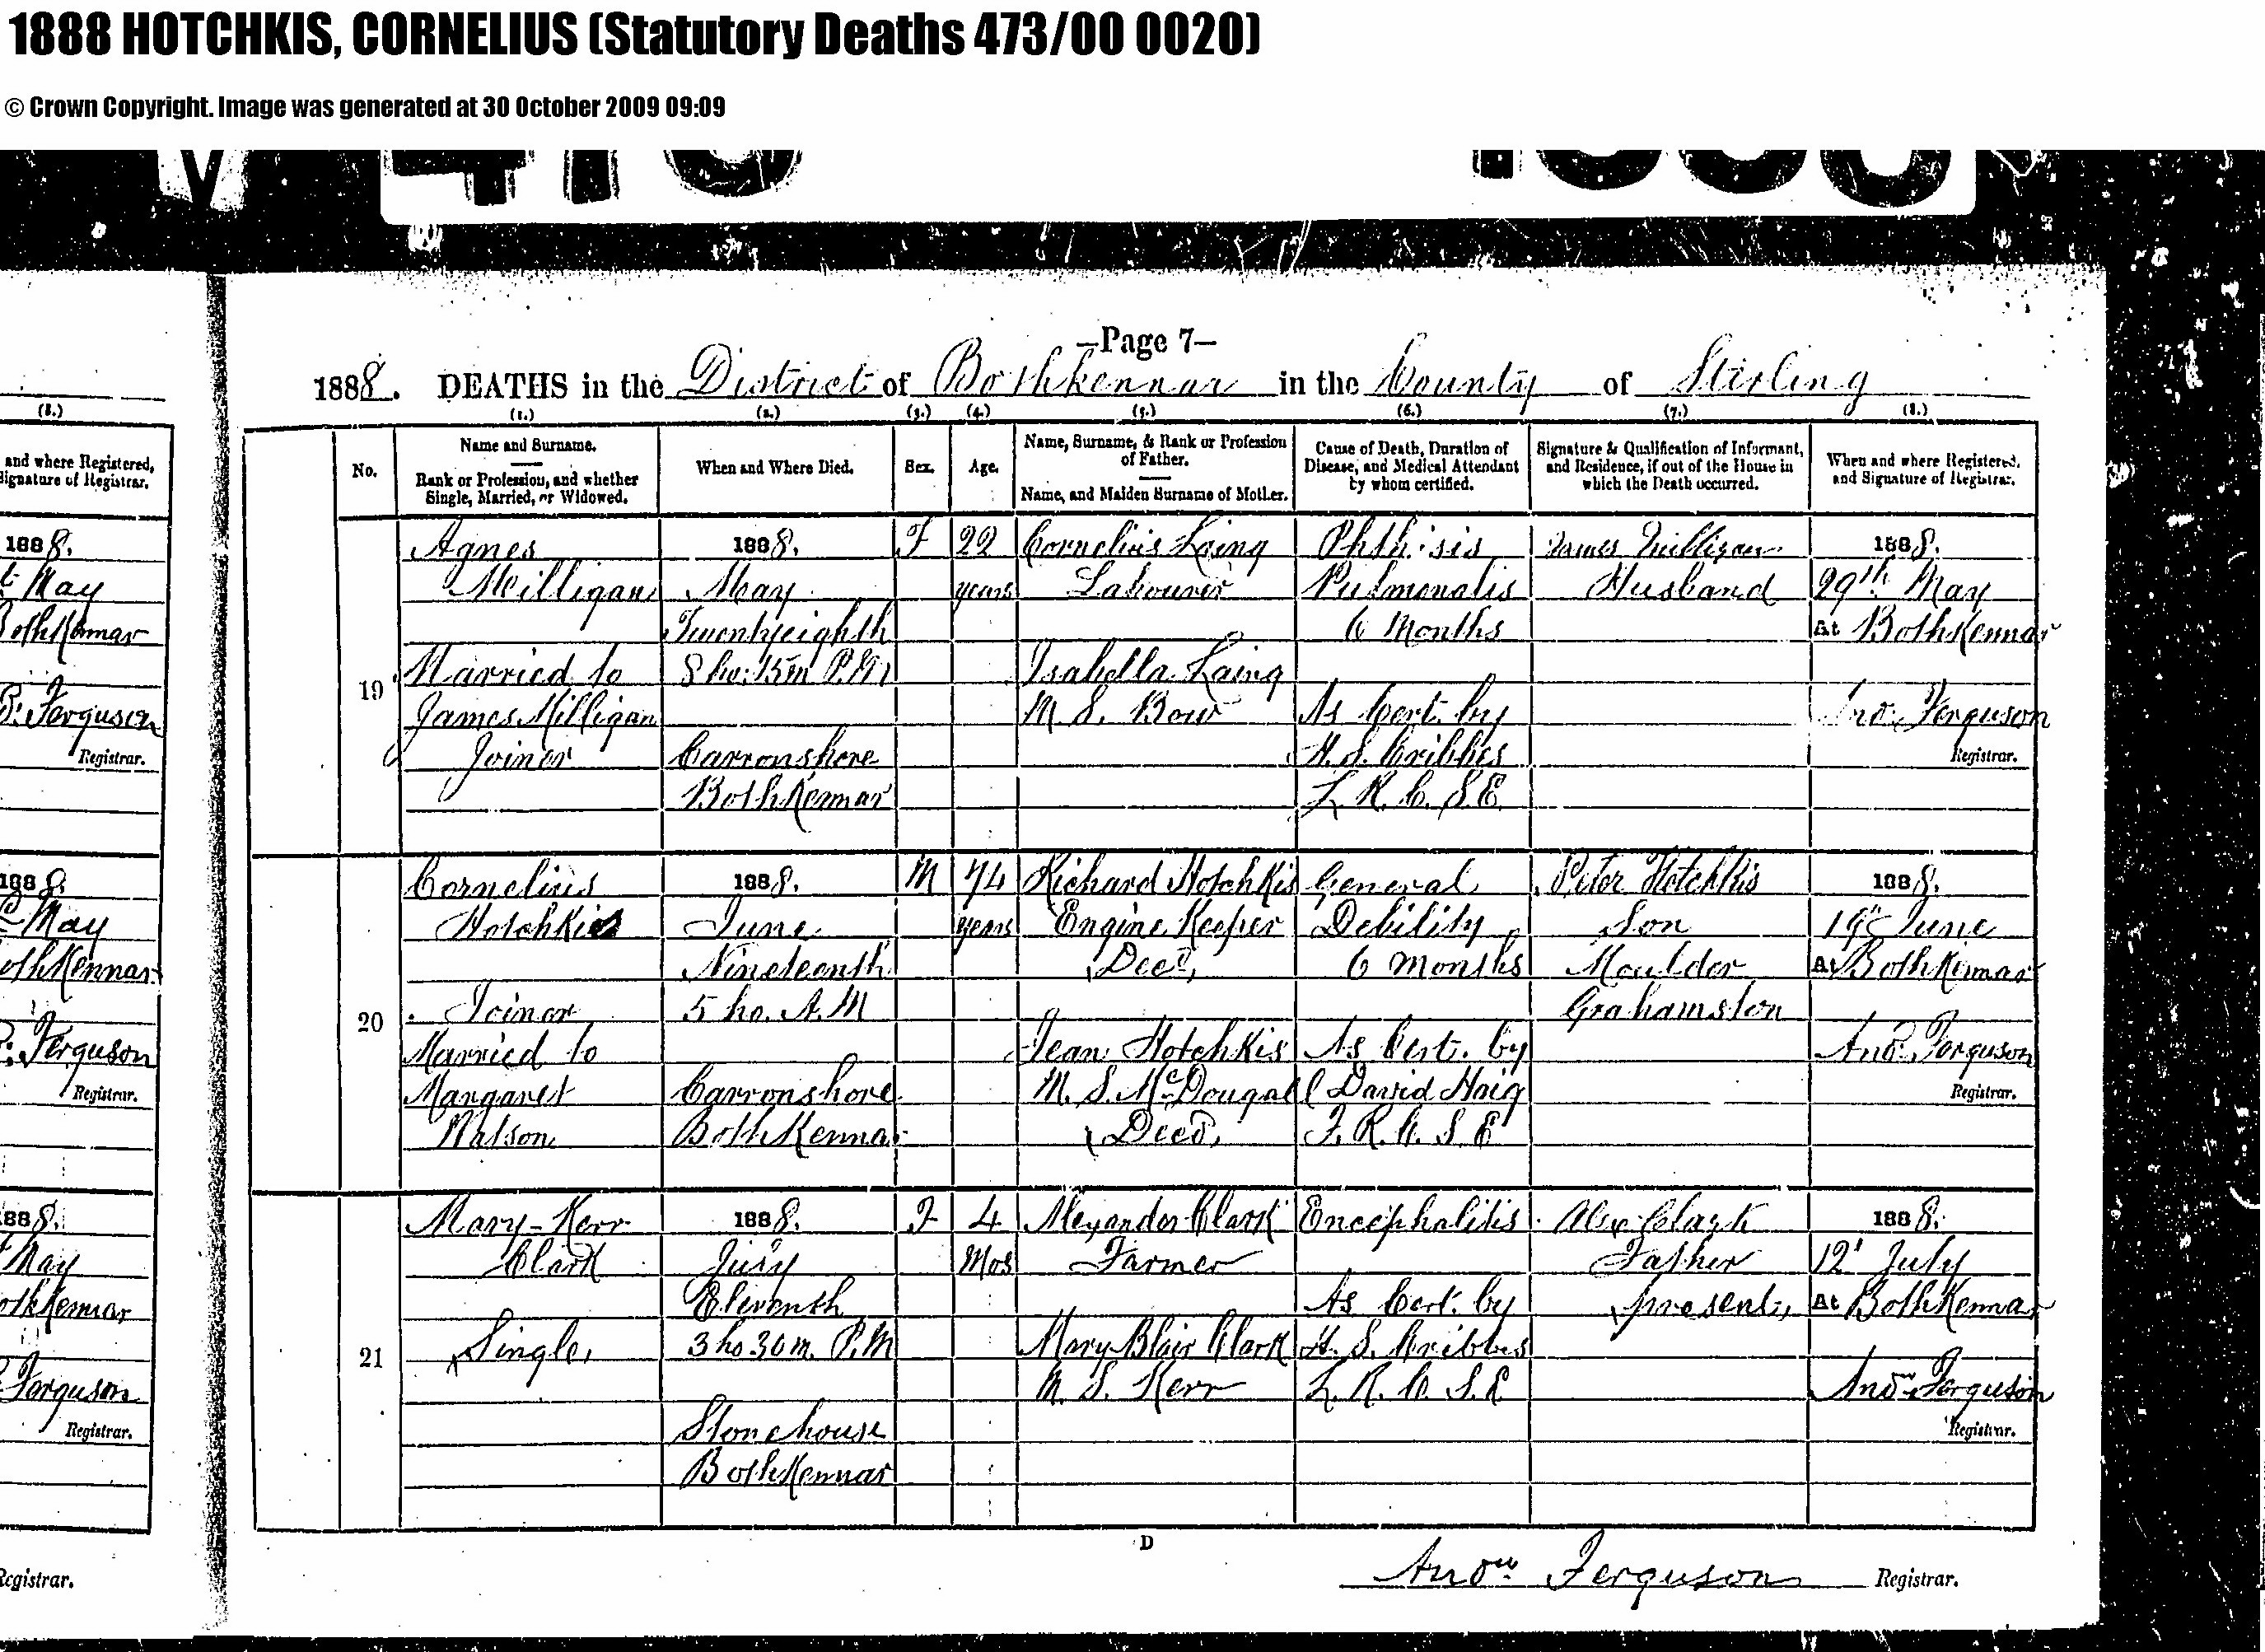 1888 HOTCHKIS, CORNELIUS (Statutory Deaths 473/00 0020)
© Crown Copyright. Image was generated at 30 October 2009 09:09
—Page 7—
1888. DEATHS in the District of Bothkennar in the County of Stirling
(8.)
(1.) (2.) (3.) (4.) (5.) (6.) (7.) (8.)
and where Registered,
Signature of Registrar.
1888.
May
Bothkennar
Ferguson
Registrar.
1888.
May
Bothkennar
Ferguson
Registrar.
1888.
May
Bothkennar
Ferguson
Registrar.
Registrar.
No.
Name and Surname.
Rank or Profession, and whether
Single, Married, or Widowed.
When and Where Died.
Sex.
Age.
Name, Surname, & Rank or Profession
of Father.
Name, and Maiden Surname of Mother.
Cause of Death, Duration of
Disease, and Medical Attendant
by whom certified.
Signature & Qualification of Informant,
and Residence, if out of the House in
which the Death occurred.
When and where Registered,
and Signature of Registrar.
19
Agnes
Milligan
Married to
James Milligan
Joiner
1888.
May
Twenty eighth
8 ho. 15 m P.M
Carronshore
Bothkennar
F
22
years
Cornelius Laing
Labourer
Isabella Laing
M. S. Bow
Phthisis
Pulmonalis
6 Months
As Cert. by
H. S. Cribbes
L. R. C. S. E.
James Milligan
Husband
1888.
29th May
At Bothkennar
Ferguson
Registrar.
20
Cornelius
Hotchkis
Joiner
Married to
Margaret
Watson
1888.
June
Nineteenth
5 ho. A. M
Carronshore
Bothkennar
M
74
years
Richard Hotchkis
Engine Keeper
(Decd)
Jean Hotchkis
M. S. McDougall
(Decd)
General
Debility
6 Months
As Cert. by
David Haig
F. R. C. S. E
Peter Hotchkis
Son
Moulder
Grahamston
1888.
19th June
At Bothkennar
Andw Ferguson
Registrar.
21
Mary Kerr
Clark
(Single)
1888.
July
Eleventh
3 ho 30 m. P.M
Stonehouse
Bothkennar
F
4
Mos
Alexander Clark
Farmer
Mary Blair Clark
M. S. Kerr
Encephalitis
As Cert. by
H. S. Cribbes
L. R. C. S. E
Alex Clark
Father
(present)
1888.
12th July
At Bothkennar
Andw Ferguson
Registrar.
D
Andw Ferguson Registrar.